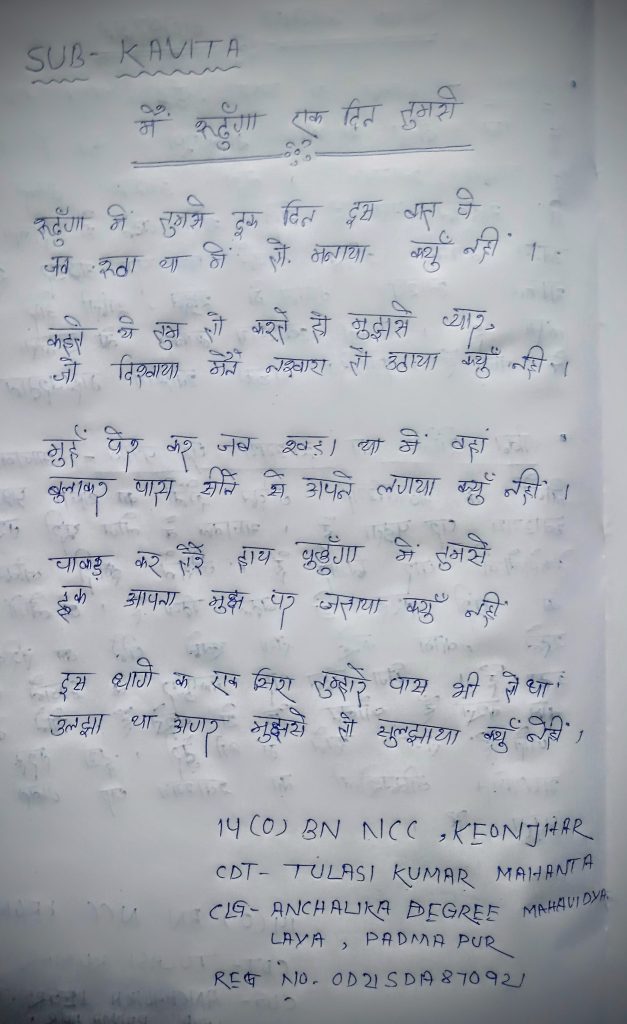 SUB- KAVITA
मैं रूठुँगा एक दिन तुमसे
रूठुँगा में तुमसे इक दिन इस बात पे
जब रूठा था में तो मनाया क्युँ नहीं ।
कहते थे तुम तो करते हो मुझसे प्यार,
जो दिखाया मैंने नखारा तो उठाया क्युँ नही ।
मुहँ फेर कर जब खड़ा था में वहां
बुलाकर पास सीने से अपने लगाया क्युँ नहीं ।
पाकड़ कर तेरे हाथ पुछुँगा में तुमसे
हक आपना मुझ पर जताया क्युँ नही
इस धागे क एक सिरा तुम्हारे पास भी तो था
उलझा था अगर मुझसे तो सुलझाया क्युँ नहीं ,
14(O) BN NCC , KEONJHAR
CDT- TULASI KUMAR MAHANTA
CLG- ANCHALIKA DEGREE MAHAVIDYA
LAYA , PADMAPUR
REG NO. OD21SDA870921